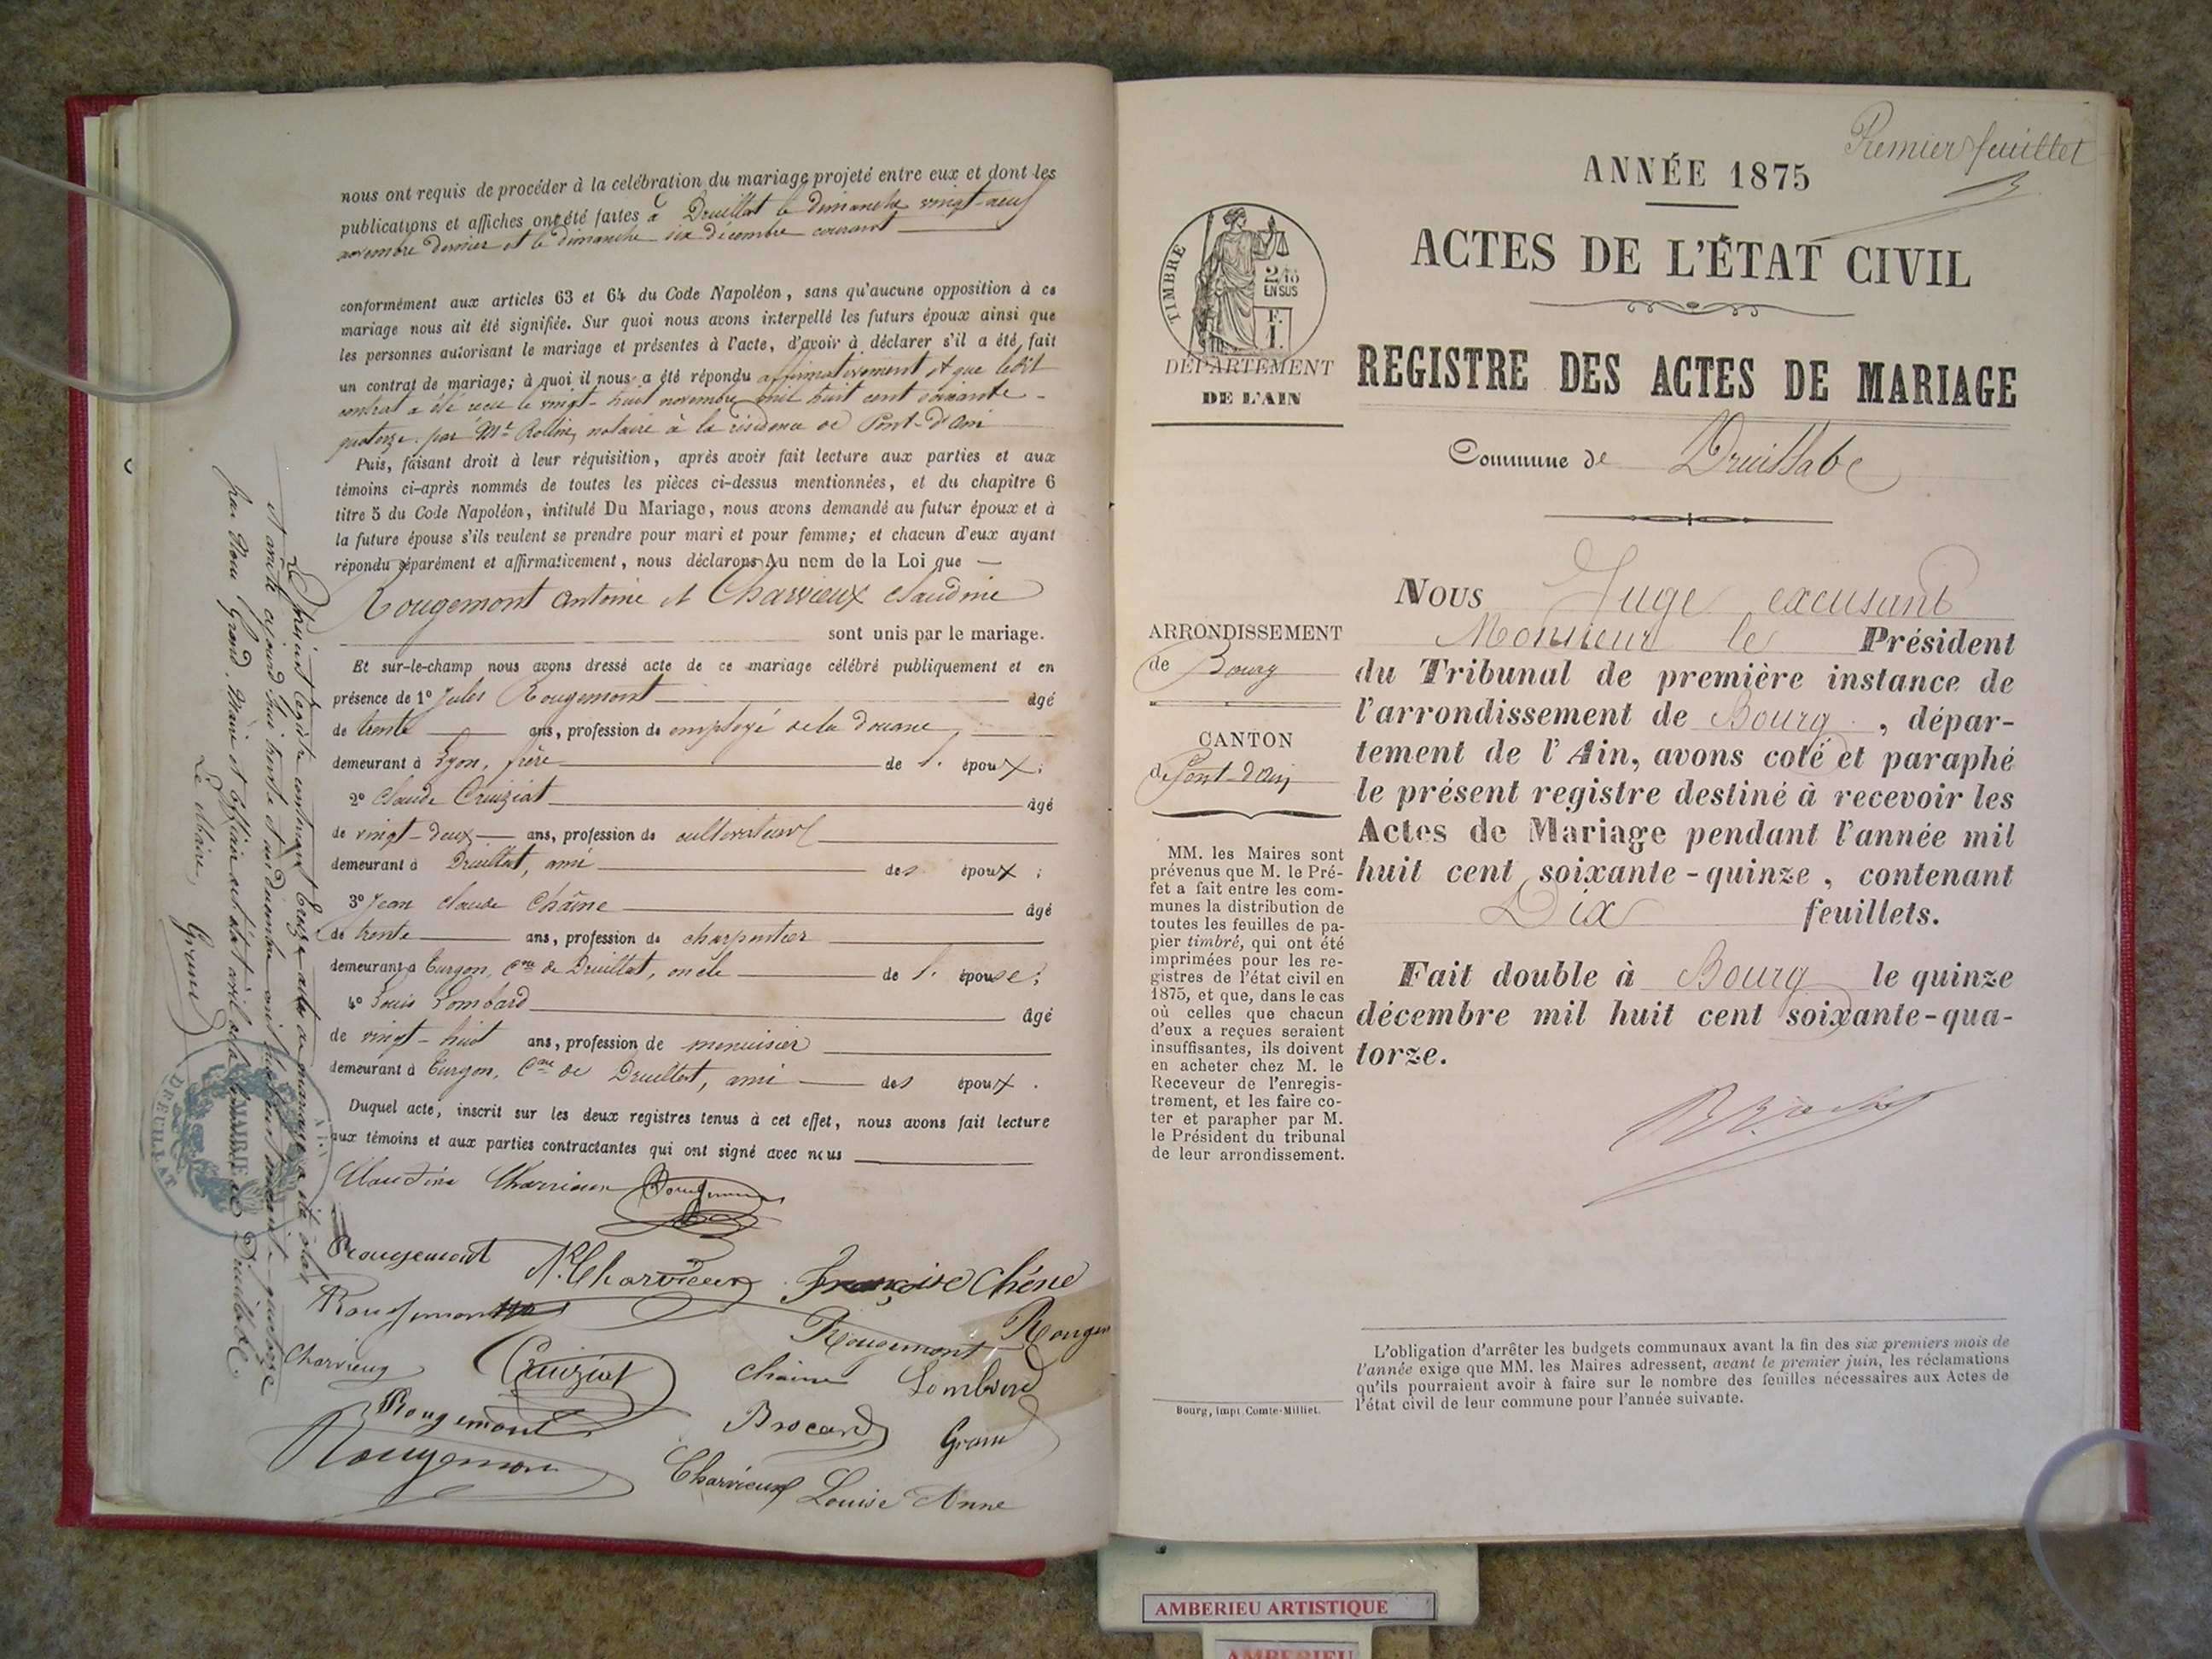 nous ont requis de procéder à la celébration du mariage projeté entre eux et dont les
publications et affiches ont été faites à Druillat le dimanche vingt-neuf
novembre dernier et le dimanche six décembre courant
conformément aux articles 63 et 64 du Code Napoléon, sans qu'aucune opposition à ce
mariage nous ait été signifiée. Sur quoi nous avons interpellé les futurs époux ainsi que
les personnes autorisant le mariage et présentes à l'acte, d'avoir à déclarer s'il a été fait
un contrat de mariage; à quoi il nous a été répondu affirmativement et que ledit
contrat a été reçu le vingt-huit novembre mil huit cent soixante-
quatorze par Me notaire à la résidence de Pont-d'Ain
Puis, faisant droit à leur réquisition, après avoir fait lecture aux parties et aux
témoins ci-après nommés de toutes les pièces ci-dessus mentionnées, et du chapitre 6
titre 5 du Code Napoléon, intitulé Du Mariage, nous avons demandé au futur époux et à
la future épouse s'ils veulent se prendre pour mari et pour femme; et chacun d'eux ayant
répondu séparément et affirmativement, nous déclarons Au nom de la Loi que
Rougemont Antoine et Charvieux Claudine
sont unis par le mariage.
Et sur-le-champ nous avons dressé acte de ce mariage célébré publiquement et en
présence de 1° Jules Rougemont âgé
de trente ans, profession de employé de la douane
demeurant à Lyon, frère de l' époux;
2° Claude Cruiziat âgé
de vingt-deux ans, profession de cultivateur
demeurant à Druillat, ami des époux;
3° Jean Claude Chaîne âgé
de trente ans, profession de charpentier
demeurant à Turgon, Cne de Druillat, oncle de l' épouse;
4° Louis Lombard âgé
de vingt-huit ans, profession de menuisier
demeurant à Turgon, Cne de Druillat, ami des époux.
Duquel acte, inscrit sur les deux registres tenus à cet effet, nous avons fait lecture
aux témoins et aux parties contractantes qui ont signé avec nous
Claudine Charvieux Rougemont
Rougemont N. Charvieux Françoise Chêne
Rougemont Rougemont Rougem
Charvieux Cruiziat Chaine Lombard
Rougemont Brocard Grand
Rougemont Charvieux Louise Anne
Le présent registre contenant actes de mariage a été clos
et arrêté aujourd'hui trente et un décembre mil huit cent soixante quatorze
par Nous Grand, Maire et officier de l'état civil de la commune de Druillat.
Le Maire,
Grand
MAIRIE
DE DRUILLAT
AIN
Premier feuillet
ANNÉE 1875
ACTES DE L'ÉTAT CIVIL
REGISTRE DES ACTES DE MARIAGE
Commune de Druillat
TIMBRE
2/10
EN SUS
F.
1.
DÉPARTEMENT
DE L'AIN
ARRONDISSEMENT
de Bourg
CANTON
de Pont-d'Ain
MM. les Maires sont
prévenus que M. le Pré-
fet a fait entre les com-
munes la distribution de
toutes les feuilles de pa-
pier timbré, qui ont été
imprimées pour les re-
gistres de l'état civil en
1875, et que, dans le cas
où celles que chacun
d'eux a reçues seraient
insuffisantes, ils doivent
en acheter chez M. le
Receveur de l'enregis-
trement, et les faire co-
ter et parapher par M.
le Président du tribunal
de leur arrondissement.
Bourg, impr. Comte-Milliet.
Nous Juge excusant
Monsieur le Président
du Tribunal de première instance de
l'arrondissement de Bourg, dépar-
tement de l'Ain, avons coté et paraphé
le présent registre destiné à recevoir les
Actes de Mariage pendant l'année mil
huit cent soixante-quinze, contenant
Dix feuillets.
Fait double à Bourg le quinze
décembre mil huit cent soixante-qua-
torze.
L'obligation d'arrêter les budgets communaux avant la fin des six premiers mois de
l'année exige que MM. les Maires adressent, avant le premier juin, les réclamations
qu'ils pourraient avoir à faire sur le nombre des feuilles nécessaires aux Actes de
l'état civil de leur commune pour l'année suivante.
AMBERIEU ARTISTIQUE
AMBERIEU